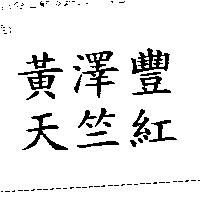 黃澤豐
天竺紅